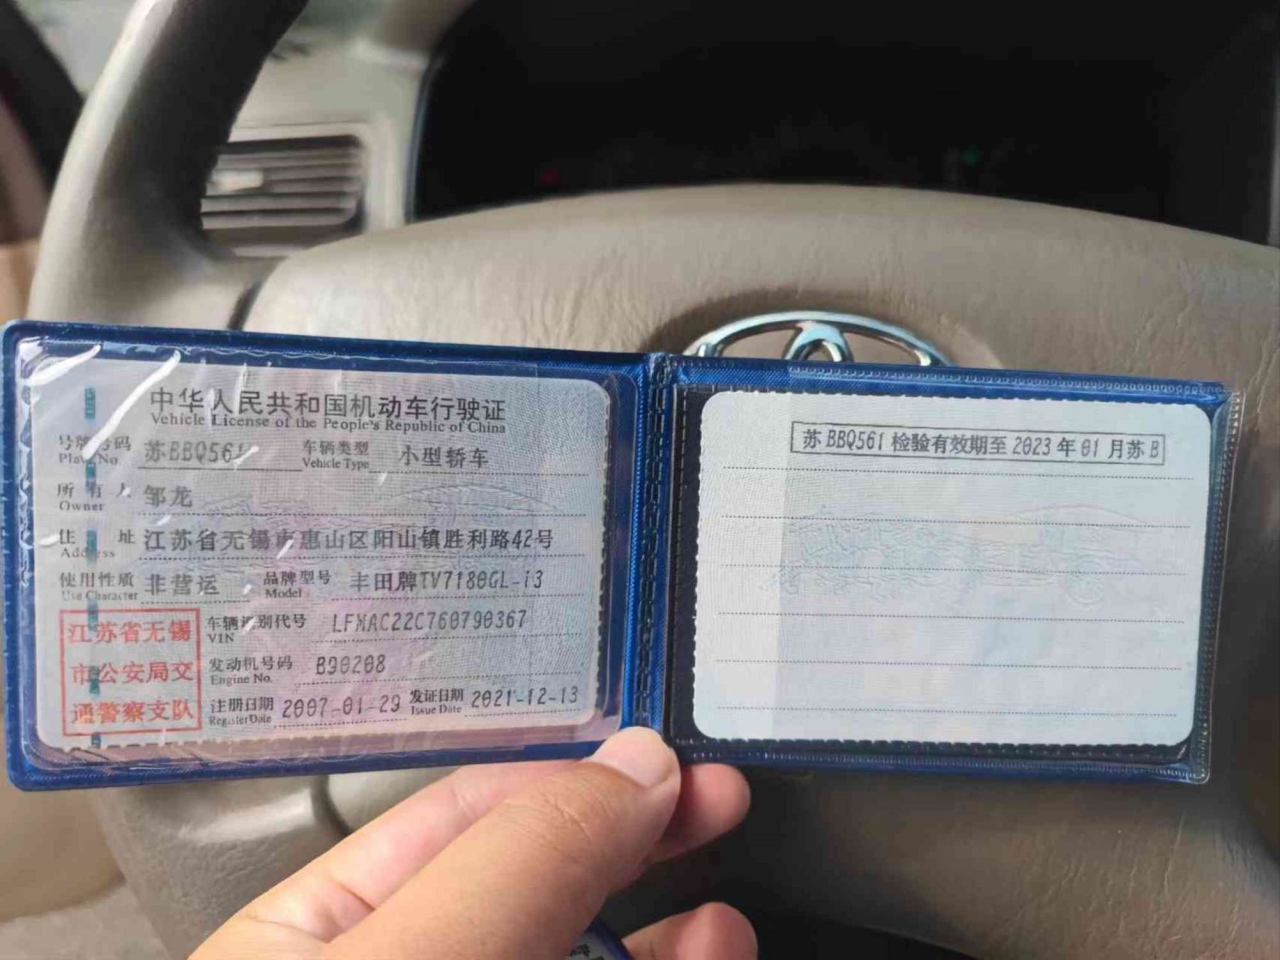 中华人民共和国机动车行驶证
Vehicle License of the People's Republic of China
号牌号码 苏BBQ561 车辆类型 小型轿车
Plate No. Vehicle Type
所有人 邹龙
Owner
住址 江苏省无锡市惠山区阳山镇胜利路42号
Address
使用性质 非营运 品牌型号 丰田牌TV7180GL-i3
Use Character Model
车辆识别代号 LFMAC22C760790367
VIN
发动机号码 B90208
Engine No.
注册日期 2007-01-29 发证日期 2021-12-13
Register Date Issue Date
江苏省无锡
市公安局交
通警察支队
苏BBQ561 检验有效期至 2023 年 01 月苏B